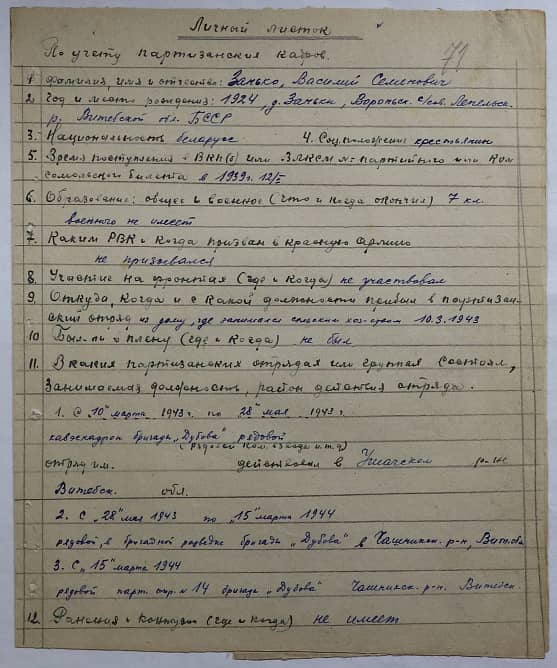 Личный листок
71
По учету партизанских кадров.
1 Фамилия, имя и отчество: Занько, Василий Семенович
2. Год и место рождения: 1924, д. Заньки, Вороньск. с/сов. Лепельск.
р. Витебской обл. БССР
3. Национальность беларус 4. Соц.положение крестьянин
5. Время поступления в ВКП(б) или ВЛКСМ № партийного или Ком
сомольского билета в 1939г. 12/
6. Образование: общее и военное (что и когда окончил) 7 кл.
военного не имеет
7. Каким РВК и когда призван в красную армию
не призывался
8. Участие на фронтах (где и когда) не участвовал
9. Откуда, когда и с какой должности прибыл в партизан-
ский отряд из дому, где занимался сельским хоз-вом 10.3.1943
10 Был ли в плену (где и когда) не был
11. В каких партизанских отрядах или группах состоял,
Занимаемая должность, район действия отряда.
1. С "10" марта 1943 г. по "28" мая 1943 г.
кавэскадрон бригады „Дубова" рядовой
(рядовой ком. взвода и т.д)
отряд им. действовал в Ушачском р-не
Витебск. обл.
2. С "28" мая 1943 по "15" марта 1944
рядовой, в бригадной разведке бригады „Дубова" в Чашникск. р-н, Вит. об
3. С „15" марта 1944
рядовой парт. отр. № 14 бригады „Дубова" Чашникск. р-н. Витебск
12. Ранения и контузии (где и когда) не имеет